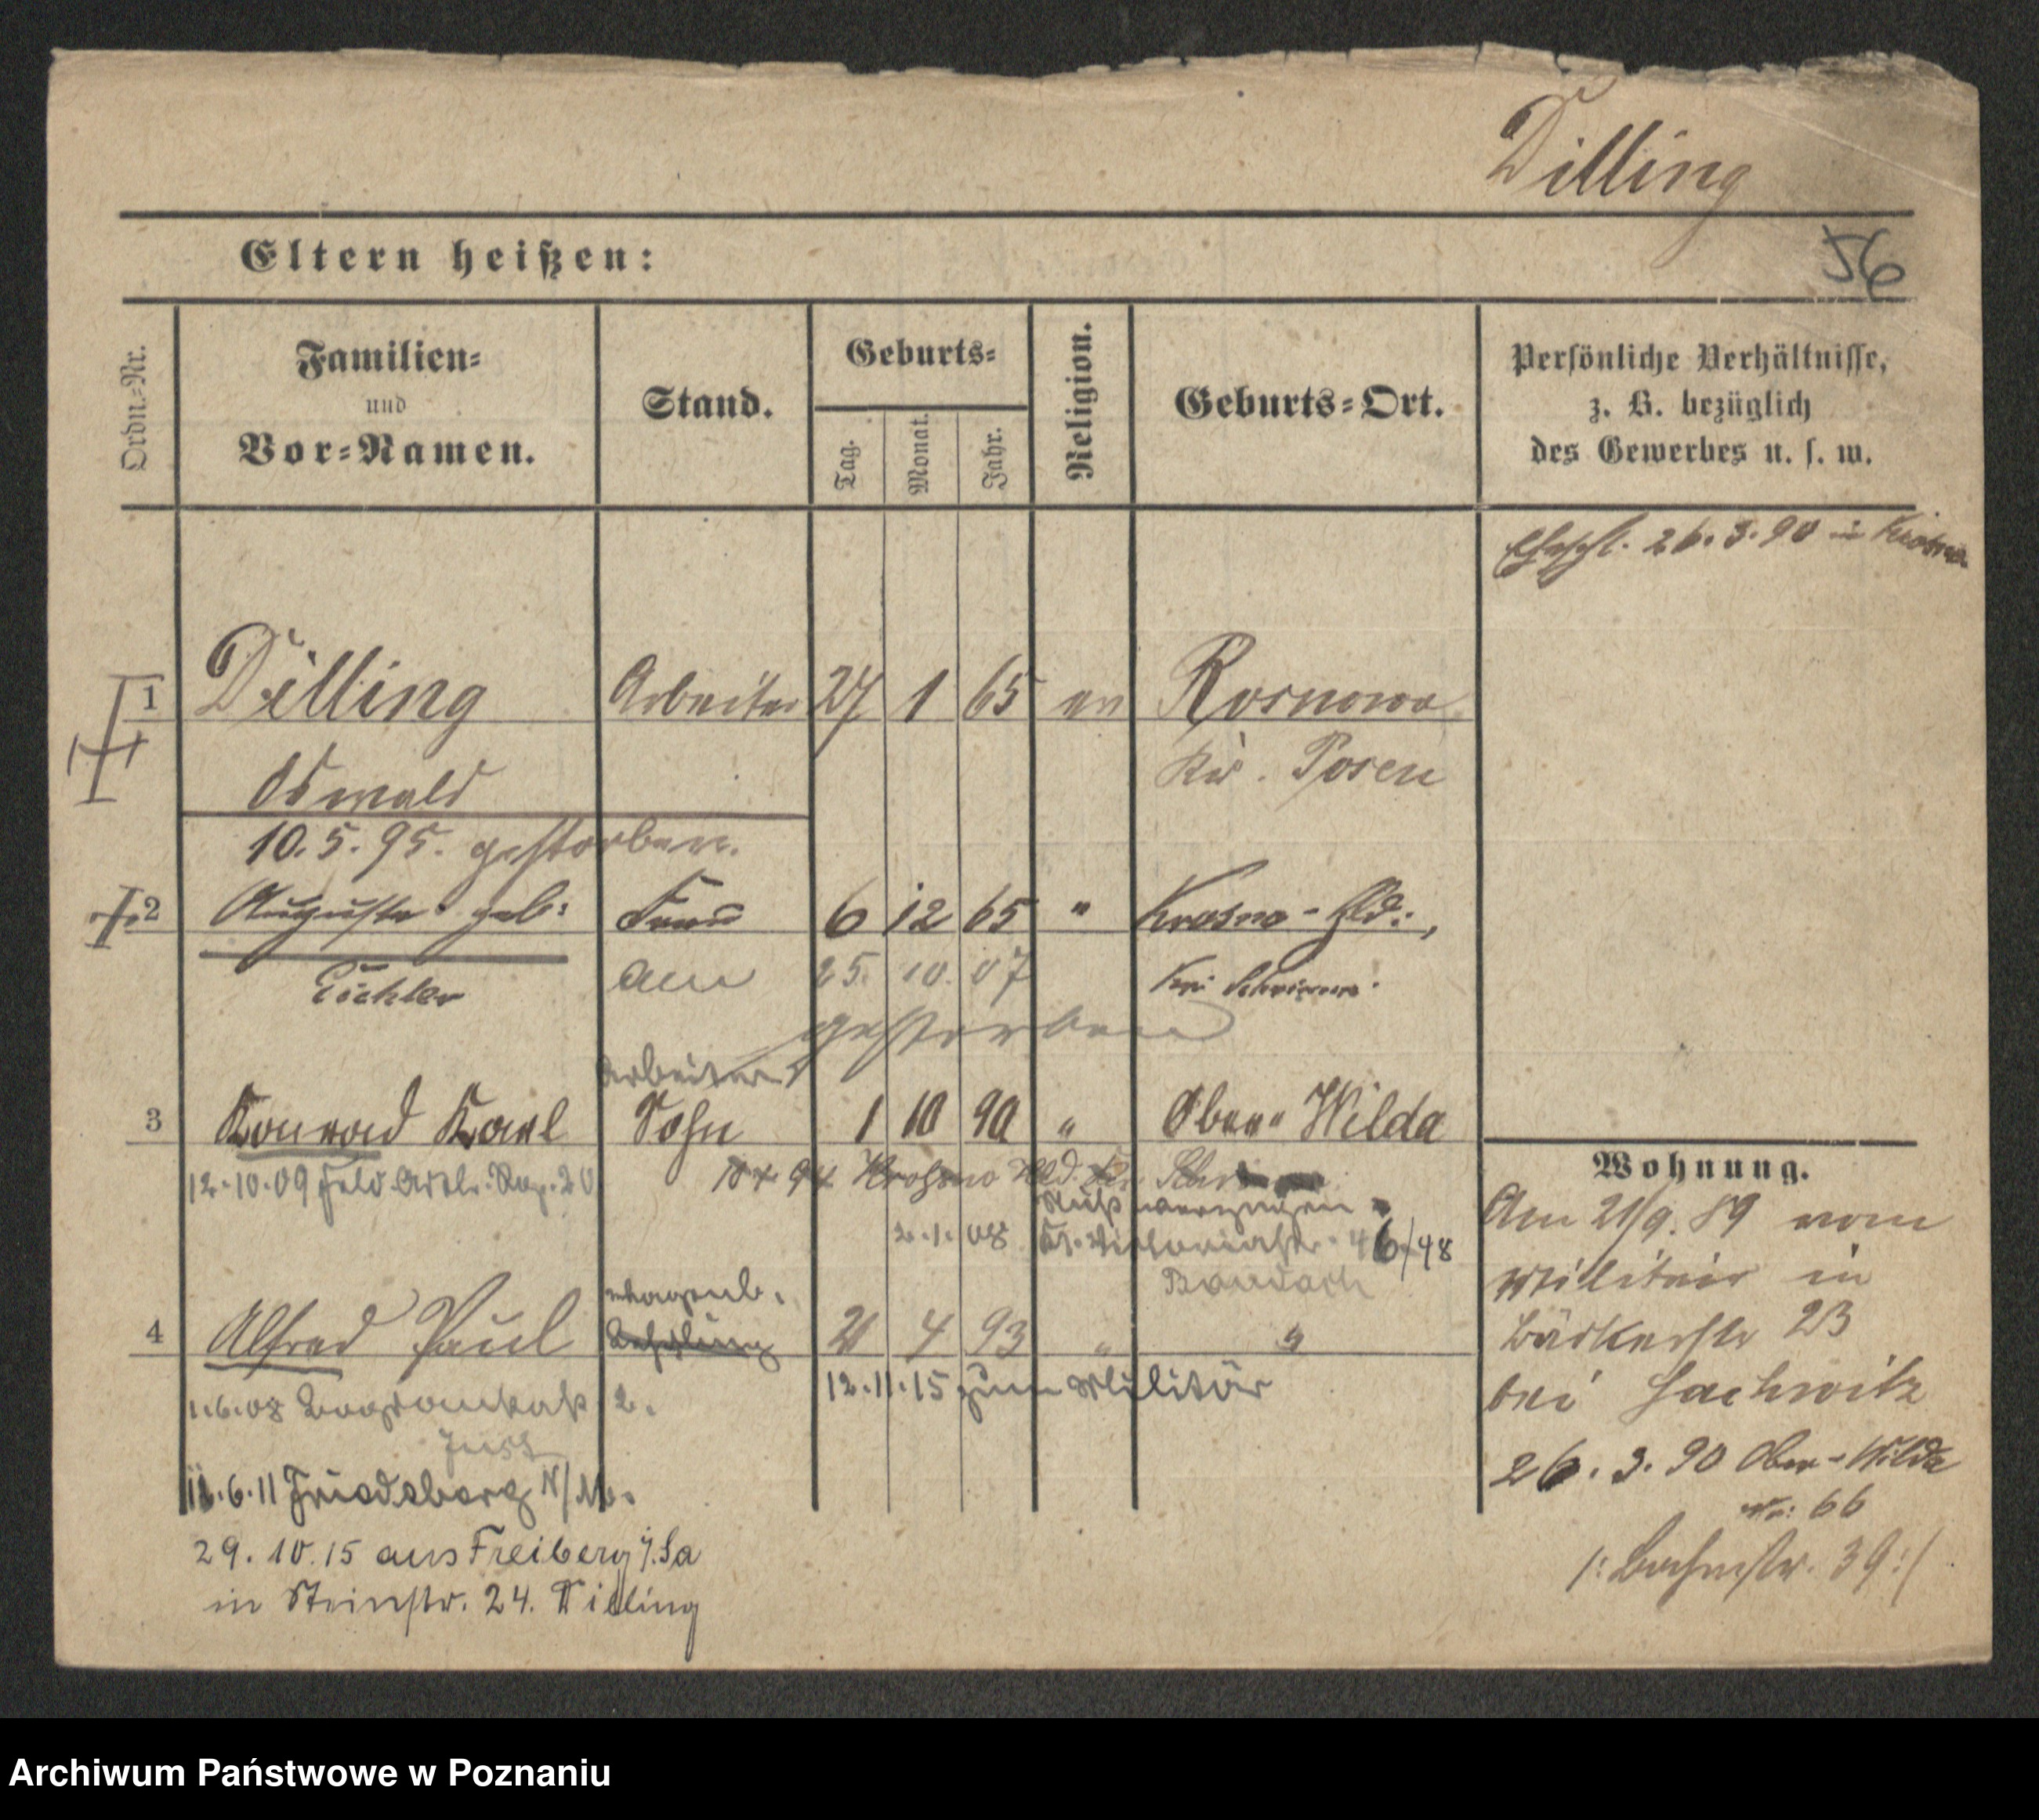 Dilling
56
Eltern heißen:
Ordn.-Nr.
Familien-
und
Vor-Namen.
Stand.
Geburts-
Tag.
Monat.
Jahr.
Religion.
Geburts-Ort.
Persönliche Verhältnisse,
z. B. bezüglich
des Gewerbes u. s. w.
26. 3. 90 in Krosno
1 Dilling Arbeiter 27 1 65 ev Rosnowo
Oswald Kr. Posen
10. 5. 95. gestorben.
2 Auguste geb: Frau 6 12 65 " Krosno-Hld:,
Eichler am 25. 10. 07
gestorben
Arbeiter
3 Konrad Karl Sohn 1 10 90 " Ober-Wilda
12.10.09 Feld. Artl. Rag. 20
94 Krosno Hld.
verzogen
2. 1. 08 46/48
4 Alfred Paul Lehrling 21 4 93 " "
12.11.15 zum Militär
1.6.08 2.
6.11 Friedeberg N/M.
29. 10. 15 aus Freiberg i. Sa
in Steinstr. 24. Dilling
Wohnung.
Am 21/9. 89 vom
Militair in
Bäckerstr 23
bei Lachwitz
26. 3. 90 Ober-Wilda
No: 66
/: Bachstr. 39 :/
Archiwum Państwowe w Poznaniu